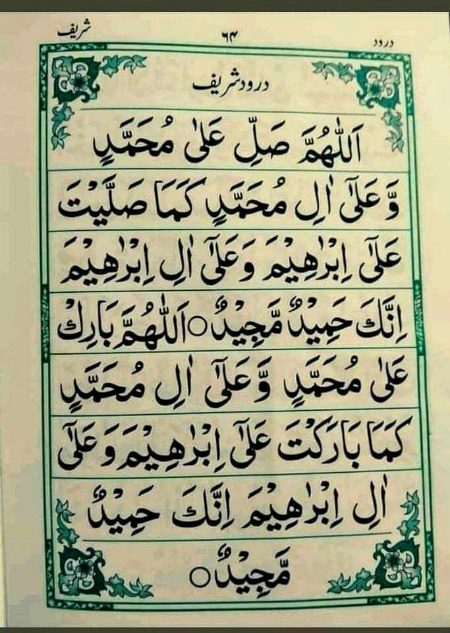 درود ۶۴ شریف
درود شریف
اَللّٰهُمَّ صَلِّ عَلٰی مُحَمَّدٍ
وَّعَلٰٓی اٰلِ مُحَمَّدٍ كَمَا صَلَّيْتَ
عَلٰٓی اِبْرٰهِيْمَ وَعَلٰٓی اٰلِ اِبْرٰهِيْمَ
اِنَّكَ حَمِيْدٌ مَّجِيْدٌ○اَللّٰهُمَّ بَارِكْ
عَلٰی مُحَمَّدٍ وَّعَلٰٓی اٰلِ مُحَمَّدٍ
كَمَا بَارَكْتَ عَلٰٓی اِبْرٰهِيْمَ وَعَلٰٓی
اٰلِ اِبْرٰهِيْمَ اِنَّكَ حَمِيْدٌ
مَّجِيْدٌ○